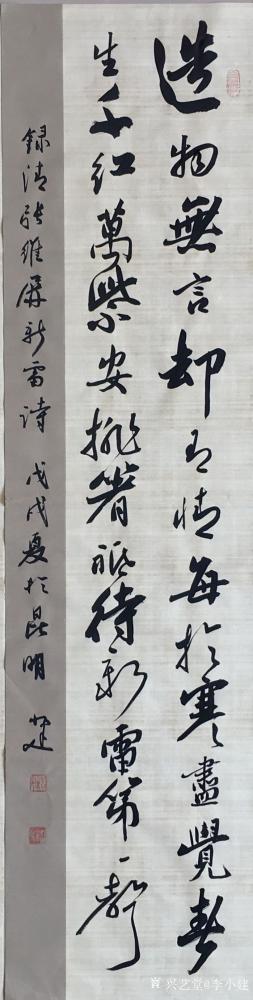 造物無言却有情每於寒盡覺春
生千紅萬紫安排著祗待新雷第一聲
録清張維屏新雷詩 戊戌夏於昆明 小建
兴艺堂@李小建